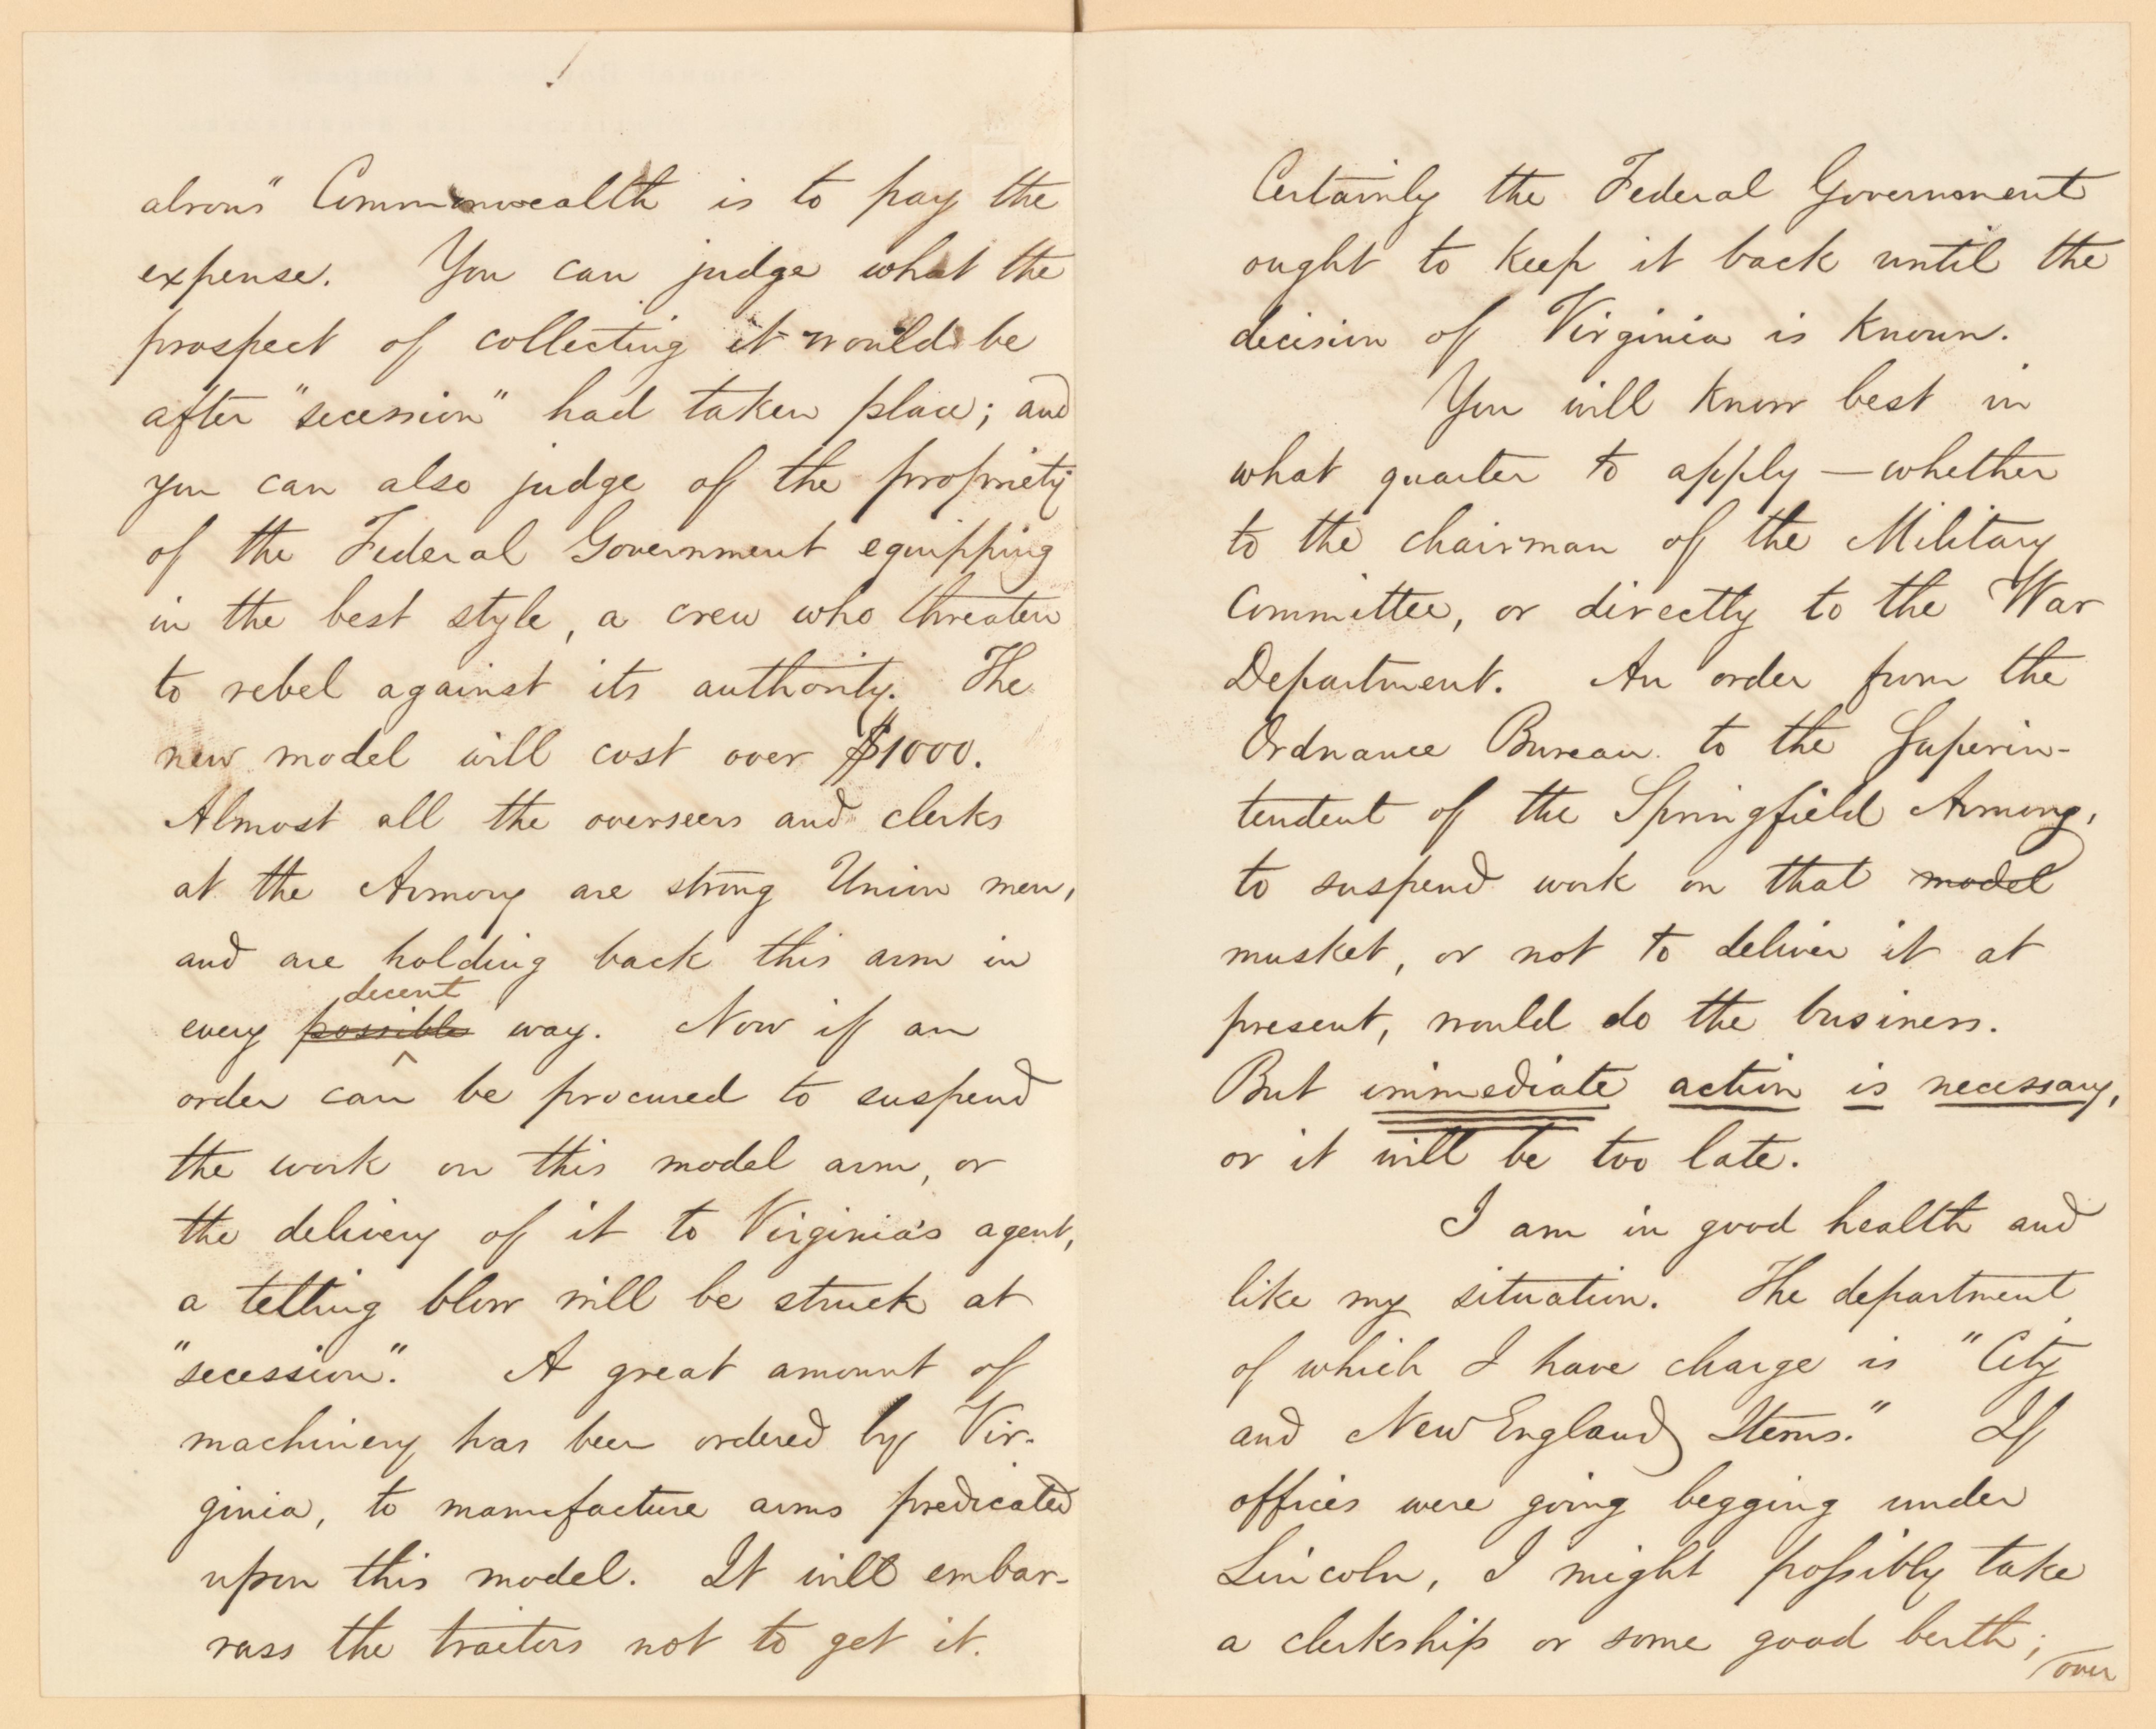 alrous" Commonwealth is to pay the
expense. You can judge what the
prospect of collecting it would be
after "secession" had taken place; and
you can also judge of the propriety
of the Federal Government equipping
in the best style, a crew who threaten
to rebel against its authority. The
new model will cost over $1000.
Almost all the overseers and clerks
at the Armory are strong Union men,
and are holding back this arm in
decent
every possible way. Now if an
order can be procured to suspend
the work on this model arm, or
the delivery of it to Virginia's agent,
a telling blow will be struck at
"secession." A great amount of
machinery has been ordered by Vir-
ginia, to manufacture arms predicated
upon this model. It will embar-
rass the traitors not to get it.
Certainly the Federal Government
ought to keep it back until the
decision of Virginia is known.
You will know best in
what quarter to apply — whether
to the chairman of the Military
Committee, or directly to the War
Department. An order from the
Ordnance Bureau to the Superin-
tendent of the Springfield Armory,
to suspend work on that model
musket, or not to deliver it at
present, would do the business.
But immediate action is necessary,
or it will be too late.
I am in good health and
like my situation. The department
of which I have charge is "City
and New England Items." If
offices were going begging under
Lincoln, I might possibly take
a clerkship or some good berth;
over